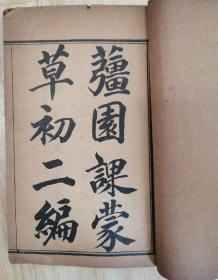 薑園課蒙
草初二編